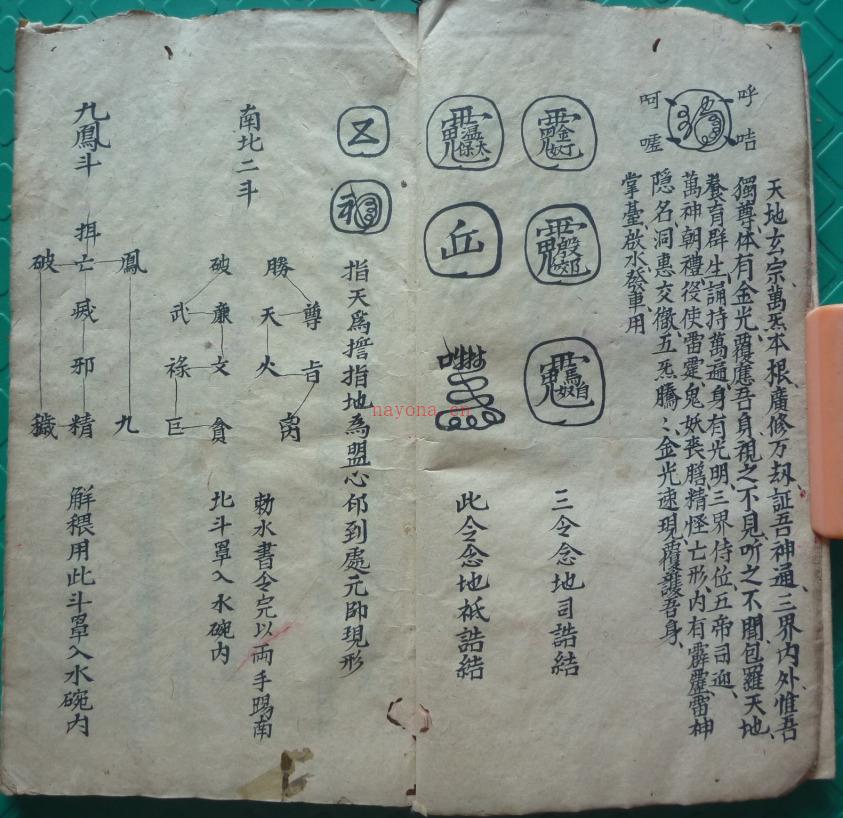 呼咭
呵嚧
天地玄宗、萬炁本根、廣修万刼、証吾神通、三界内外、惟吾
獨尊、体有金光、覆應吾身、視之不見、听之不聞、包羅天地、
養育群生、誦持萬遍、身有光明、三界侍位、五帝司迎、
萬神朝禮、役使雷霆、鬼妖喪膽、精怪亡形、内有霹靂、雷神
隐名、洞惠交徹、五炁騰〻、金光速現、覆護吾身、
掌臺、啟水發車、用
三令念地司誥結
岳
此令念地祇誥結
指天為擔指地為盟心邱到處元帥現形
南北二斗
勝
尊
天
火
破
廉
武
文
祿
貪
巨
勅水書令完以両手賜南
北斗罩入水碗内
九鳳斗
鳳
九
亡
滅
邪
精
破
穢
解穢用此斗罩入水碗内
nayona.cn